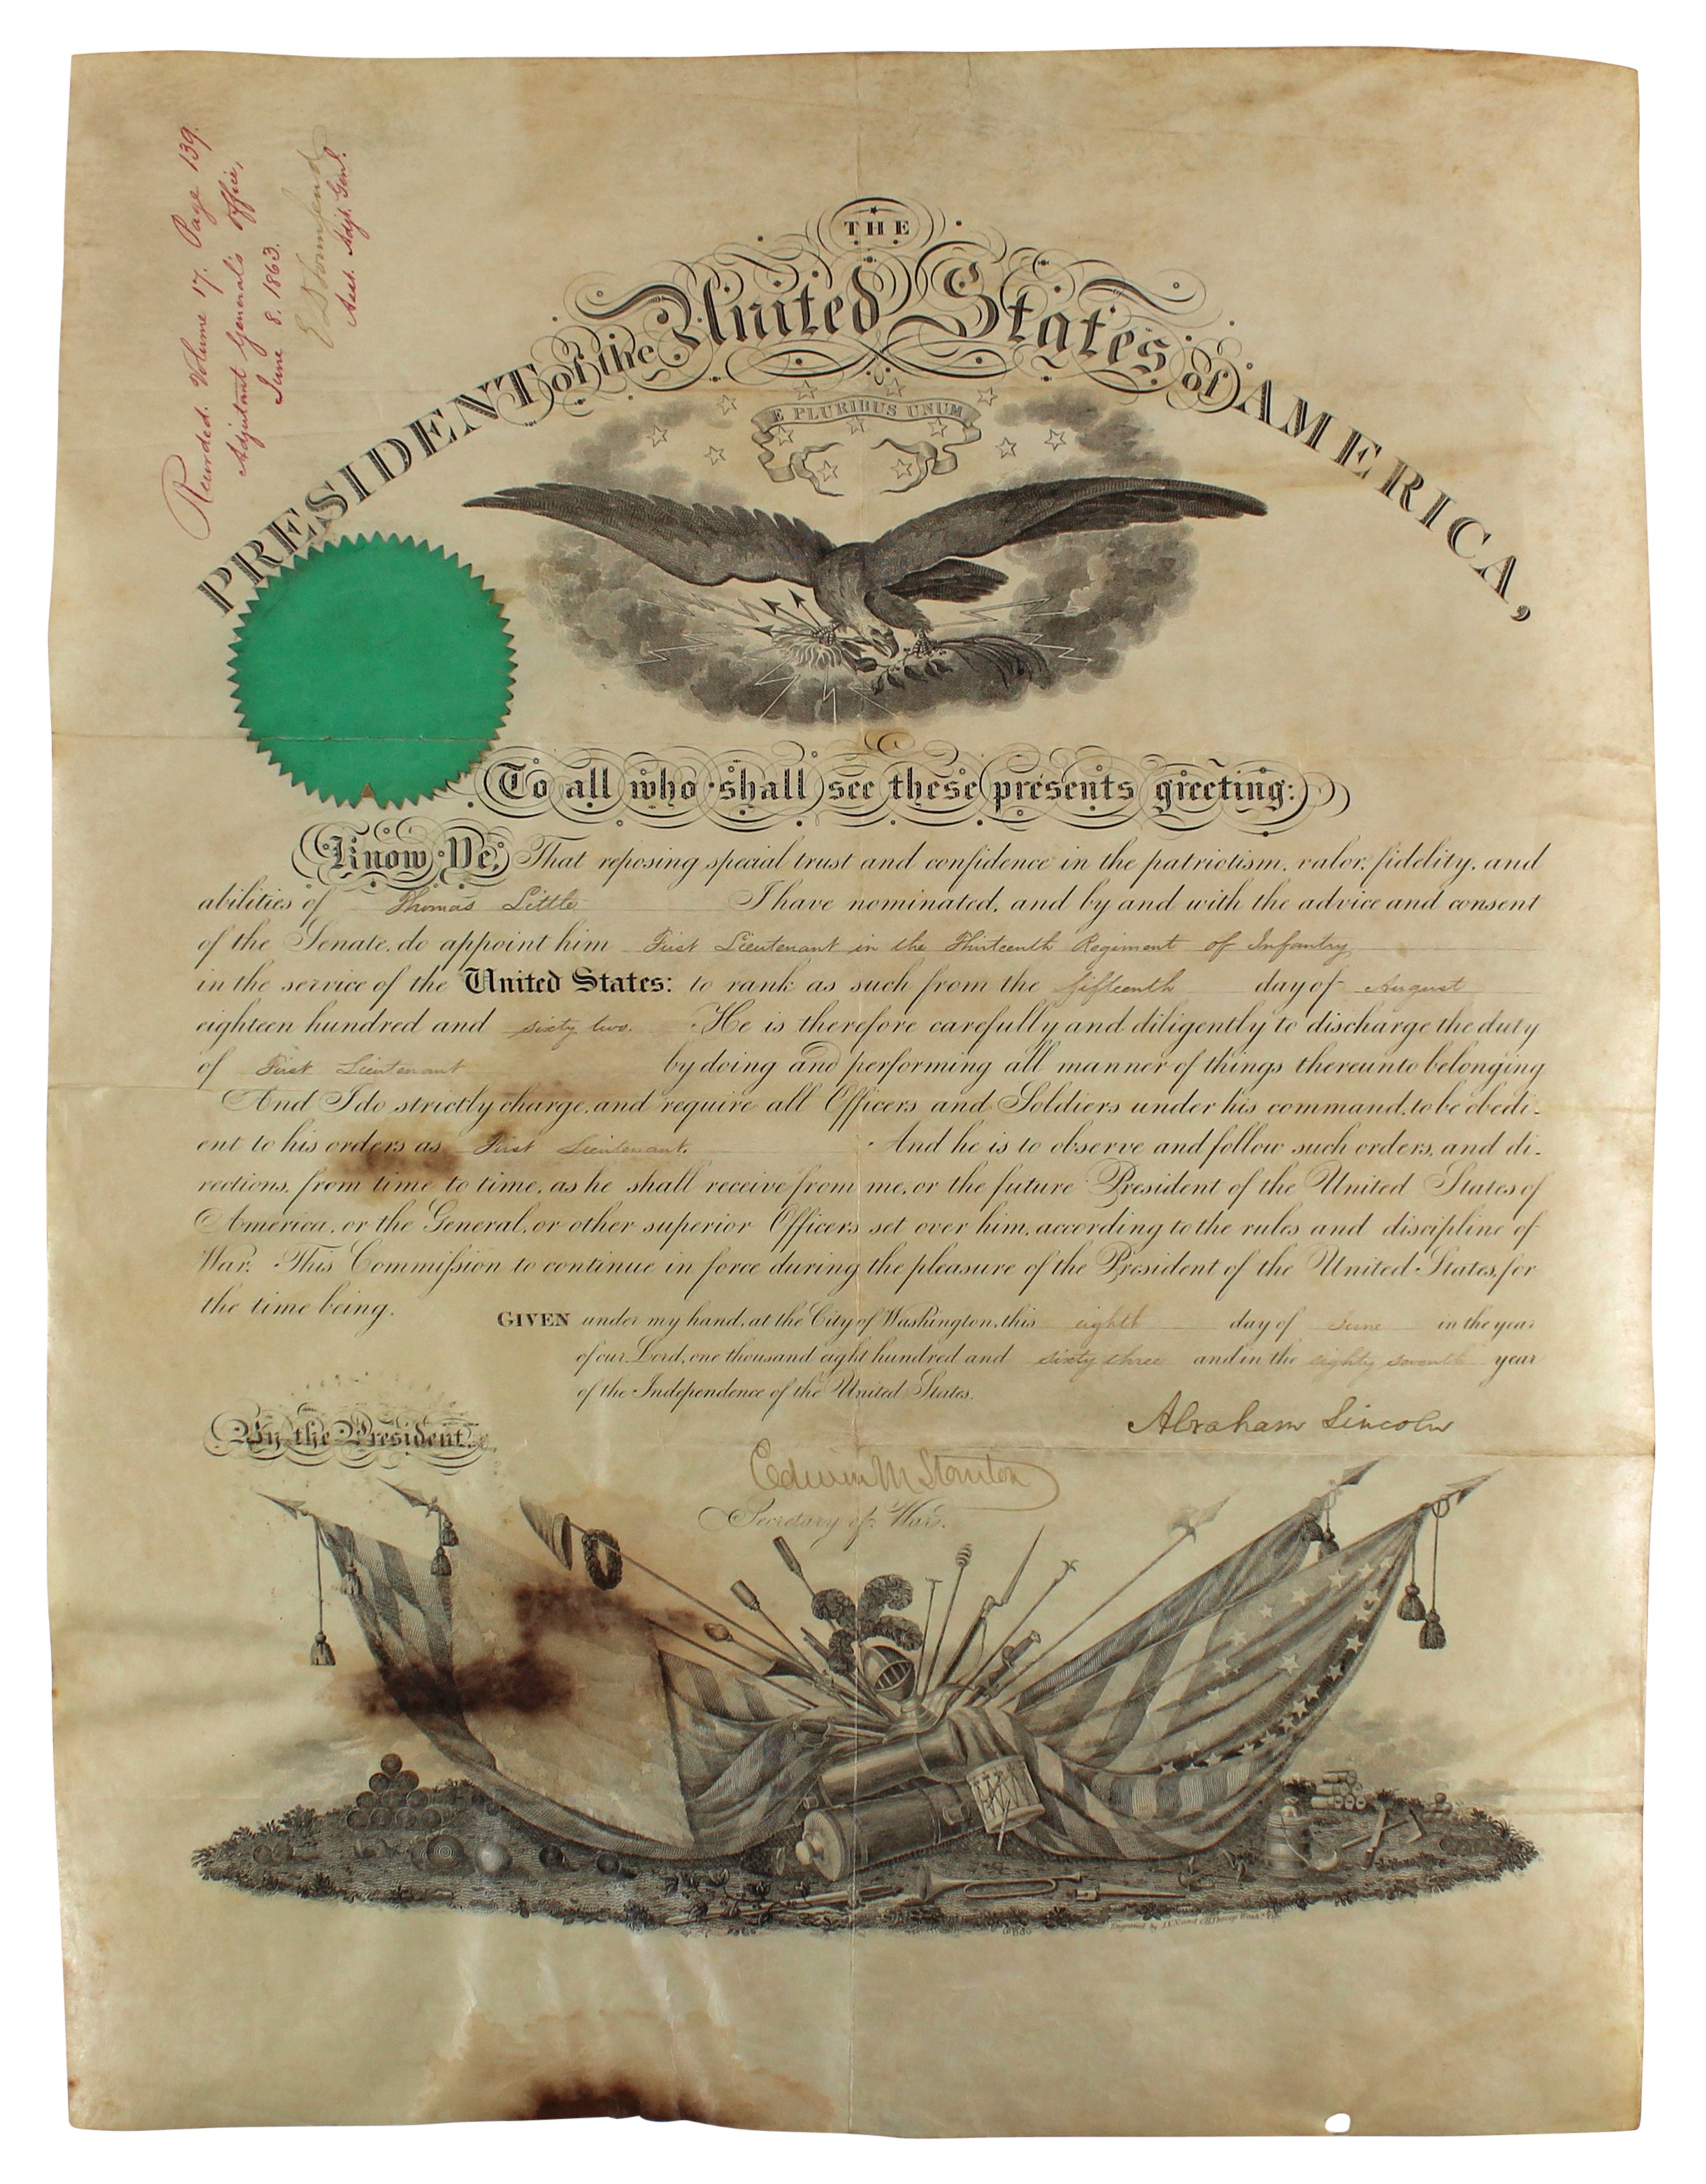 Recorded. Volume 17. Page 139.
Adjutant General's Office,
June 8. 1863.
E D Townsend
Asst. Adjt. Genl.
THE
PRESIDENT of the United States of AMERICA,
E PLURIBUS UNUM
To all who shall see these presents greeting:
Know Ye, That reposing special trust and confidence in the patriotism, valor, fidelity, and
abilities of Thomas Little I have nominated, and by and with the advice and consent
of the Senate, do appoint him First Lieutenant in the Thirteenth Regiment of Infantry
in the service of the United States: to rank as such from the fifteenth day of August
eighteen hundred and sixty two. He is therefore carefully and diligently to discharge the duty
of First Lieutenant by doing and performing all manner of things thereunto belonging
And I do strictly charge, and require all Officers and Soldiers under his command, to be obedi-
ent to his orders as First Lieutenant. And he is to observe and follow such orders, and di-
rections, from time to time, as he shall receive from me, or the future President of the United States of
America, or the General, or other superior Officers set over him, according to the rules and discipline of
War. This Commission to continue in force during the pleasure of the President of the United States, for
the time being.
GIVEN under my hand, at the City of Washington, this eighth day of June in the year
of our Lord, one thousand eight hundred and sixty three and in the eighty seventh year
of the Independence of the United States.
By the President
Abraham Lincoln
Edwin M Stanton
Secretary of War.